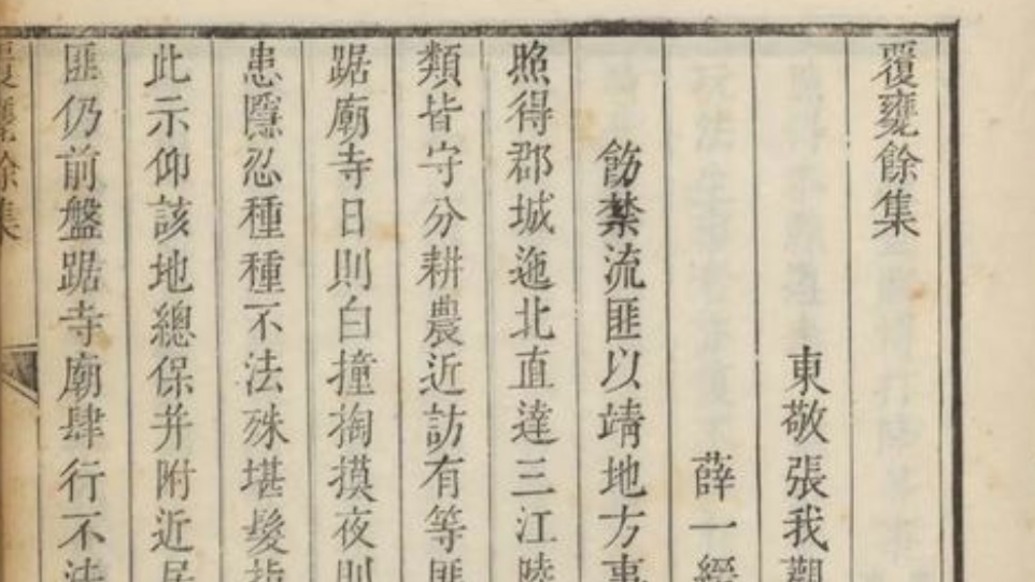 覆甕餘集
東敬張我觀
薛一經
飭禁流匪以靖地方事
照得郡城迤北直達三江陸
類皆守分耕農近訪有等匪
踞廟寺日則白撞掏摸夜則
患隱忍種種不法殊堪髮指
此示仰該地總保并附近居
匪仍前盤踞寺廟肆行不法
覆甕餘集